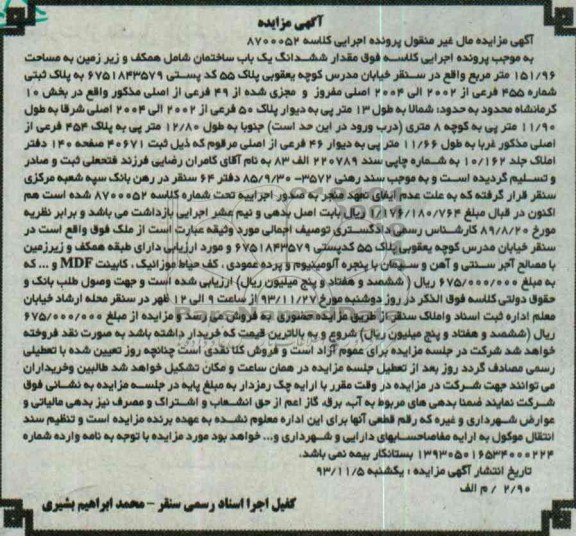 آگهی مزایده
آگهی مزایده مال غیر منقول پرونده اجرایی کلاسه ۸۷۰۰۰۵۲
به موجب پرونده اجرایی کلاسه فوق مقدار ششدانگ یک باب ساختمان شامل همکف و زیر زمین به مساحت
۱۵۱/۹۶ متر مربع واقع در سنقر خیابان مدرس کوچه یعقوبی پلاک ۵۵ کد پستی ۶۷۵۱۸۴۳۵۷۹ به پلاک ثبتی
شماره ۴۵۵ فرعی از ۲۰۰۲ الی ۲۰۰۴ اصلی مفروز و مجزی شده از ۴۹ فرعی از اصلی مذکور واقع در بخش ۱۰
کرمانشاه محدود به حدود: شمالا به طول ۱۳ متر پی به دیوار پلاک ۵۰ فرعی از ۲۰۰۲ الی ۲۰۰۴ اصلی شرقا به طول
۱۱/۹۰ متر پی به کوچه ۸ متری (درب ورود در این حد است) جنوبا به طول ۱۲/۸۰ متر پی به پلاک ۴۵۴ فرعی از
اصلی مذکور غربا به طول ۱۱/۶۶ متر پی به دیوار ۴۶ فرعی از اصلی مرقوم که ذیل ثبت ۴۰۶۷۱ صفحه ۱۴۰ دفتر
املاک جلد ۱۰/۱۶۲ به شماره چاپی سند ۲۲۰۷۸۹ الف ۸۳ به نام آقای کامران رضایی فرزند فتحعلی ثبت و صادر
و تسلیم گردیده است و به موجب سند رهنی ۳۵۷۲- ۸۵/۹/۳۰ دفتر ۶۴ سنقر در رهن بانک سپه شعبه مرکزی
سنقر قرار گرفته که به علت عدم ایفای تعهد منجر به صدور اجراییه تحت شماره کلاسه ۸۷۰۰۰۵۲ شده است هم
اکنون در قبال مبلغ ریال بابت اصل بدهی و نیم عشر اجرایی بازداشت می باشد و برابر نظریه
مورخ ۸۹/۸/۲۰ کارشناس رسمی دادگستری توصیف اجمالی مورد وثیقه عبارت است از ملک فوق واقع است در
سنقر خیابان مدرس کوچه یعقوبی پلاک ۵۵ کدپستی ۶۷۵۱۸۴۳۵۷۹ و مورد ارزیابی دارای طبقه همکف و زیرزمین
با مصالح آجر سنتی و آهن و سیمان با پنجره آلومینیوم و پرده عمودی ، کف حیاط موزائیک ، کابینت MDF و ... که
به مبلغ ۶۷۵/۰۰۰/۰۰۰ ریال ( ششصد و هفتاد و پنج میلیون ریال) ارزیابی شده است و جهت وصول طلب بانک و
حقوق دولتی کلاسه فوق الذکر در روز دوشنبه مورخ ۹۳/۱۱/۲۷ از ساعت ۹ الی ۱۲ ظهر در سنقر محله ارشاد خیابان
معلم اداره ثبت اسناد واملاک سنقر از طریق مزایده حضوری به فروش می رسد مزایده از مبلغ ۶۷۵/۰۰۰/۰۰۰
ریال (ششصد و هفتاد و پنج میلیون ریال) شروع و به بالاترین قیمت که خریدار داشته باشد به صورت نقد فروخته
خواهد شد شرکت در جلسه مزایده برای عموم آزاد است و فروش کلا نقدی است چنانچه روز تعیین شده با تعطیلی
رسمی مصادف گردد روز بعد از تعطیل جلسه مزایده در همان ساعت و مکان تشکیل خواهد شد طالبین وخریداران
می توانند جهت شرکت در مزایده در وقت مقرر با ارایه چک رمزدار به مبلغ پایه در جلسه مزایده به نشانی فوق
شرکت نمایند ضمنا بدهی های مربوط به آب، برق، گاز اعم از حق انشعاب و اشتراک و مصرف نیز بدهی مالیاتی و
عوارض شهرداری و غیره که رقم قطعی آنها برای این اداره معلوم نشده به عهده برنده مزایده است و تنظیم سند
انتقال موکول به ارایه مفاصاحسابهای دارایی و شهرداری و... خواهد بود مورد مزایده با توجه به نامه وارده شماره
۱۳۹۳۰۵۰۱۶۵۳۴۰۰۰۲۲۴ بستانکار بیمه نمی باشد.
تاریخ انتشار آگهی مزایده : یکشنبه ۹۳/۱۱/۵
۲/۹۰ / م الف
کفیل اجرا اسناد رسمی سنقر - محمد ابراهیم بشیری